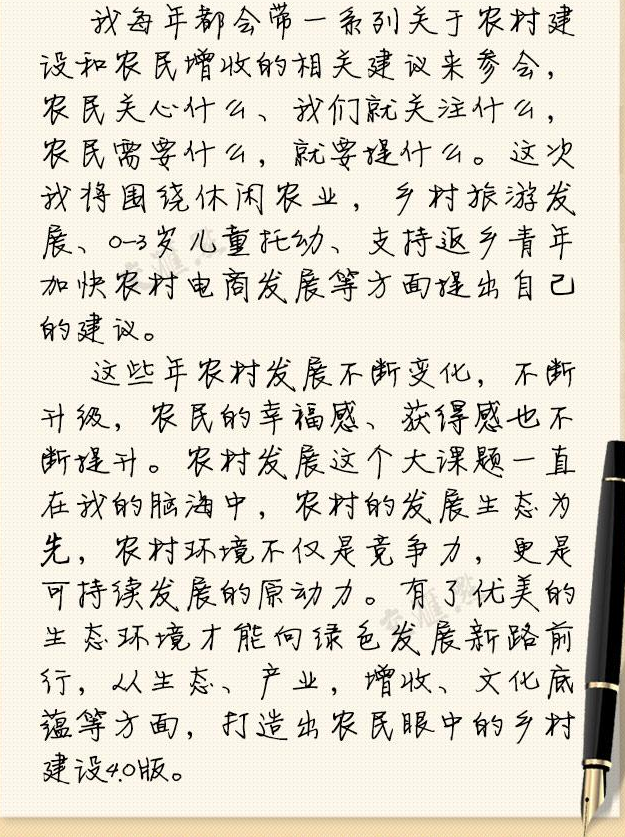 我每年都会带一系列关于农村建
设和农民增收的相关建议来参会，
农民关心什么、我们就关注什么，
农民需要什么，就要提什么。这次
我将围绕休闲农业，乡村旅游发
展、0-3岁儿童托幼、支持返乡青年
加快农村电商发展等方面提出自己
的建议。
这些年农村发展不断变化，不断
升级，农民的幸福感、获得感也不
断提升。农村发展这个大课题一直
在我的脑海中，农村的发展生态为
先，农村环境不仅是竞争力，更是
可持续发展的原动力。有了优美的
生态环境才能向绿色发展新路前
行，从生态、产业，增收、文化底
蕴等方面，打造出农民眼中的乡村
建设4.0版。